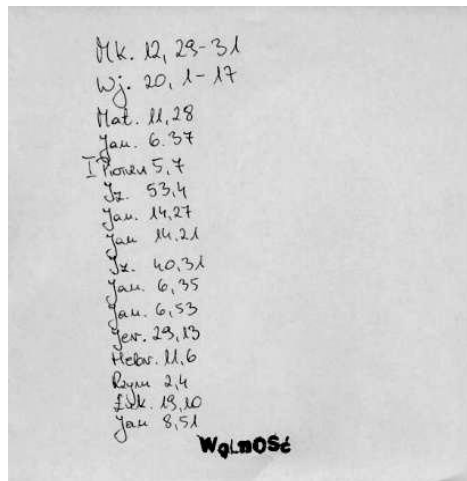 Mk. 12, 29-31
Wj. 20, 1-17
Mat. 11,28
Jan. 6.37
I Piotra 5,7
Iz. 53,4
Jan. 14,27
Jan 14.21
Iz. 40,31
Jan. 6,35
Jan. 6,53
Jer. 29,13
Hebr. 11,6
Rzym 2,4
Łuk. 19,10
Jan 8,51
WOLnOSć